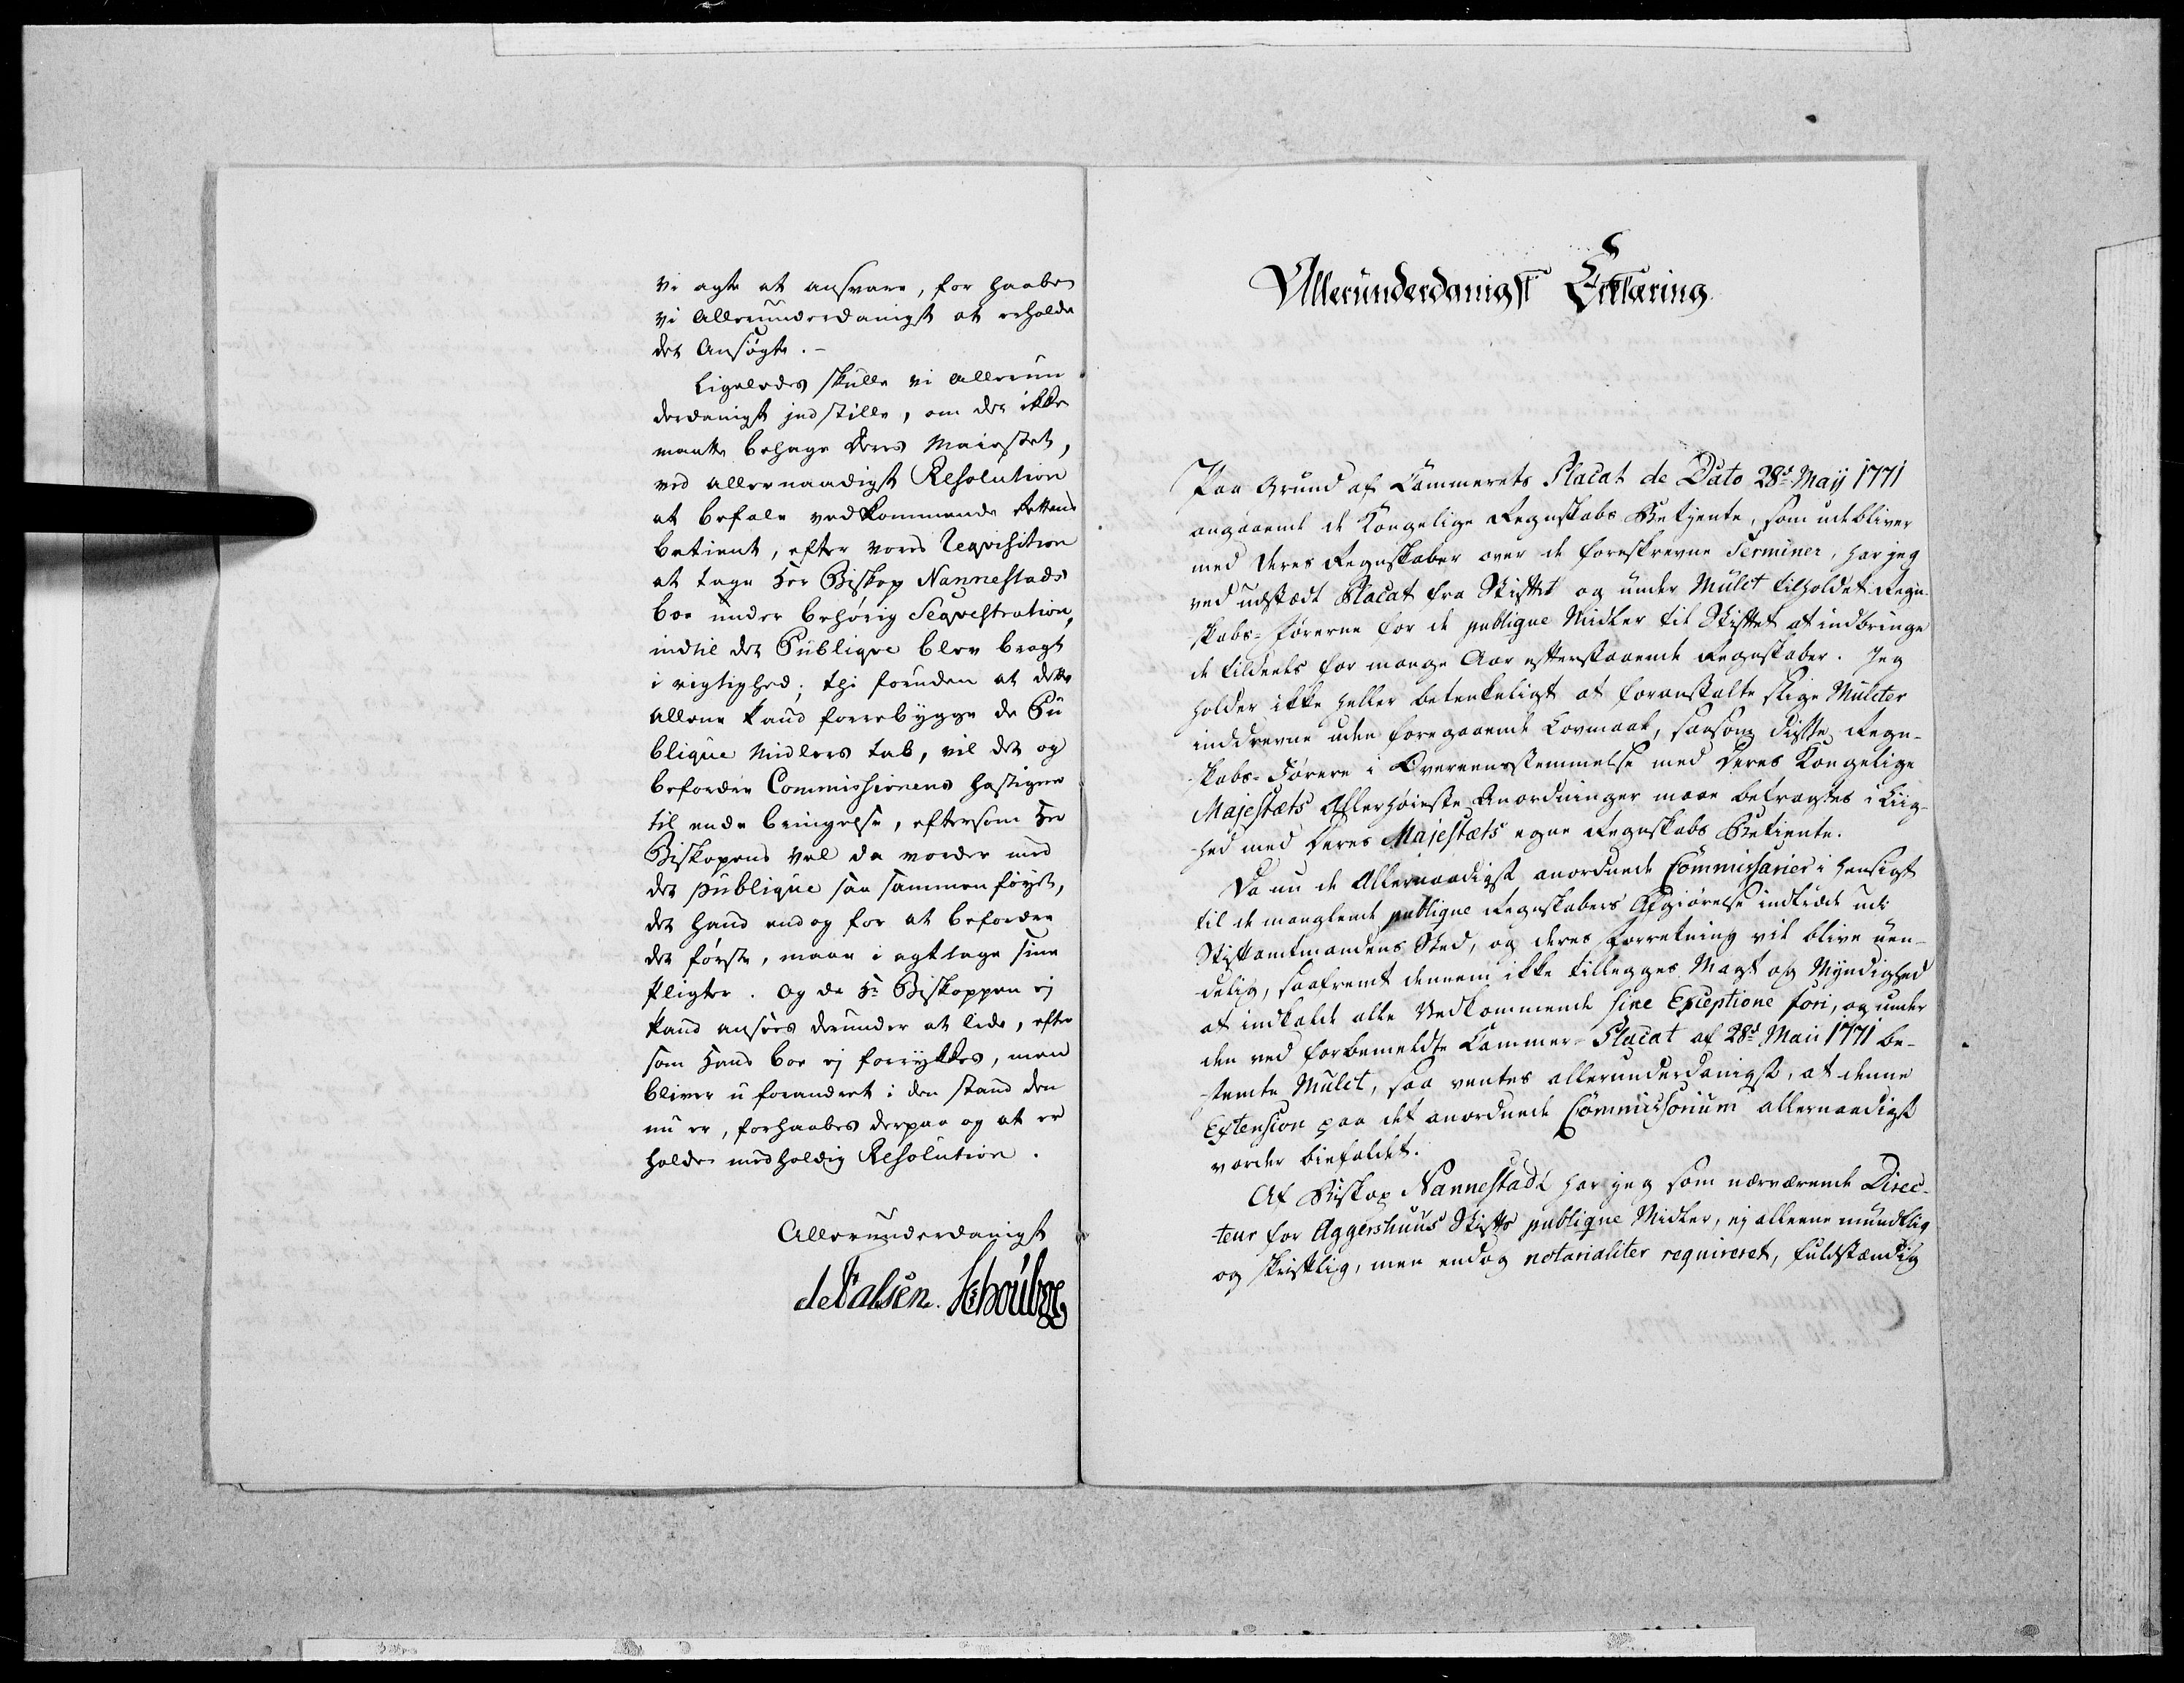 vi agte at ansvare, for haabe
vi allerunderdanigst at erholde
det Ansøgte. -
Ligeledes skulle vi allerun
derdanigst indstille, om det ikke
maatte behage Deres Maiestet,
ved allernaadigst Resolution
at befale vedkommende Rettens
betient, efter vores Reqvisition
at tage Her Biskop Nannestads
boe under behørig Seqvestration,
indtil det Publiqve blev bragt
i rigtighed; thi foruden at dette
allene kand forrebygge de Pu
blique Midlers tab, vil det og
befordre Commissionens hastigere
til ende bringelse, eftersom Her
Biskopens Vel da vorder med
det publique saa sammenføyet,
det hand endog for at befordre
det første, maae i agttage sine
Pligter. Og da Hr Biskoppen ej
kand ansees derunder at lide, efter
som Hans boe ej forrykkes, men
bliver u forandret i den stand den
nu er, forhaabes derpaa og at er
holde medholdig Resolution.
Allerunderdanigst
de Falsen. Schoubye
Allerunderdanigst Erklæring
Paa Grund af Cammerets Placat de Dato 28d May 1771
angaaende de Kongelige Regnskabs Betjente, som udebliver
med deres Regnskaber over de foreskrevne Terminer, har jeg
ved udstædt Placat fra Stiftet og under Mulct tilholdet Regn-
skabs-førerne for de publique Midler til Stiftet at indbringe
de tildeels for mange Aar efterstaaende Regnskaber. Jeg
holder ikke heller betenkeligt at foranstalte slige Mulcter
inddrevne uden foregaaende Lovmaal, saasom disse Regn-
skabs-Førere i Overeensstemmelse med Deres Kongelige
Majestæts Allerhøieste Anordninger maae betragtes i Liig-
hed med Deres Majestæts egne Regnskabs Betiente.
Da nu de Allernaadigst anordnede Commissarier i hensigt
til de manglende publique Regnskabers Afgiørelse indtræde udi
Stiftamtmandens Sted, og deres Forretning vil blive uen-
delig, saafremt dennem ikke tillegges Magt og Myndighed
at indkalde alle Vedkommende sine Exceptione fori, og under
den ved forbemeldte Cammer-Placat af 28d Maii 1771 be-
stemte Mulct, saa ventes allerunderdanigst, at denne
Extension paa det anordnede Commissorium allernaadigst
vorder biefaldet.
Af Biskop Nannestad har jeg som nærværende Direc-
teur for Aggershuus Stifts publique Midler, ej alleene mundtlig
og skriftlig, men endog notarialiter requireret, fuldstændig